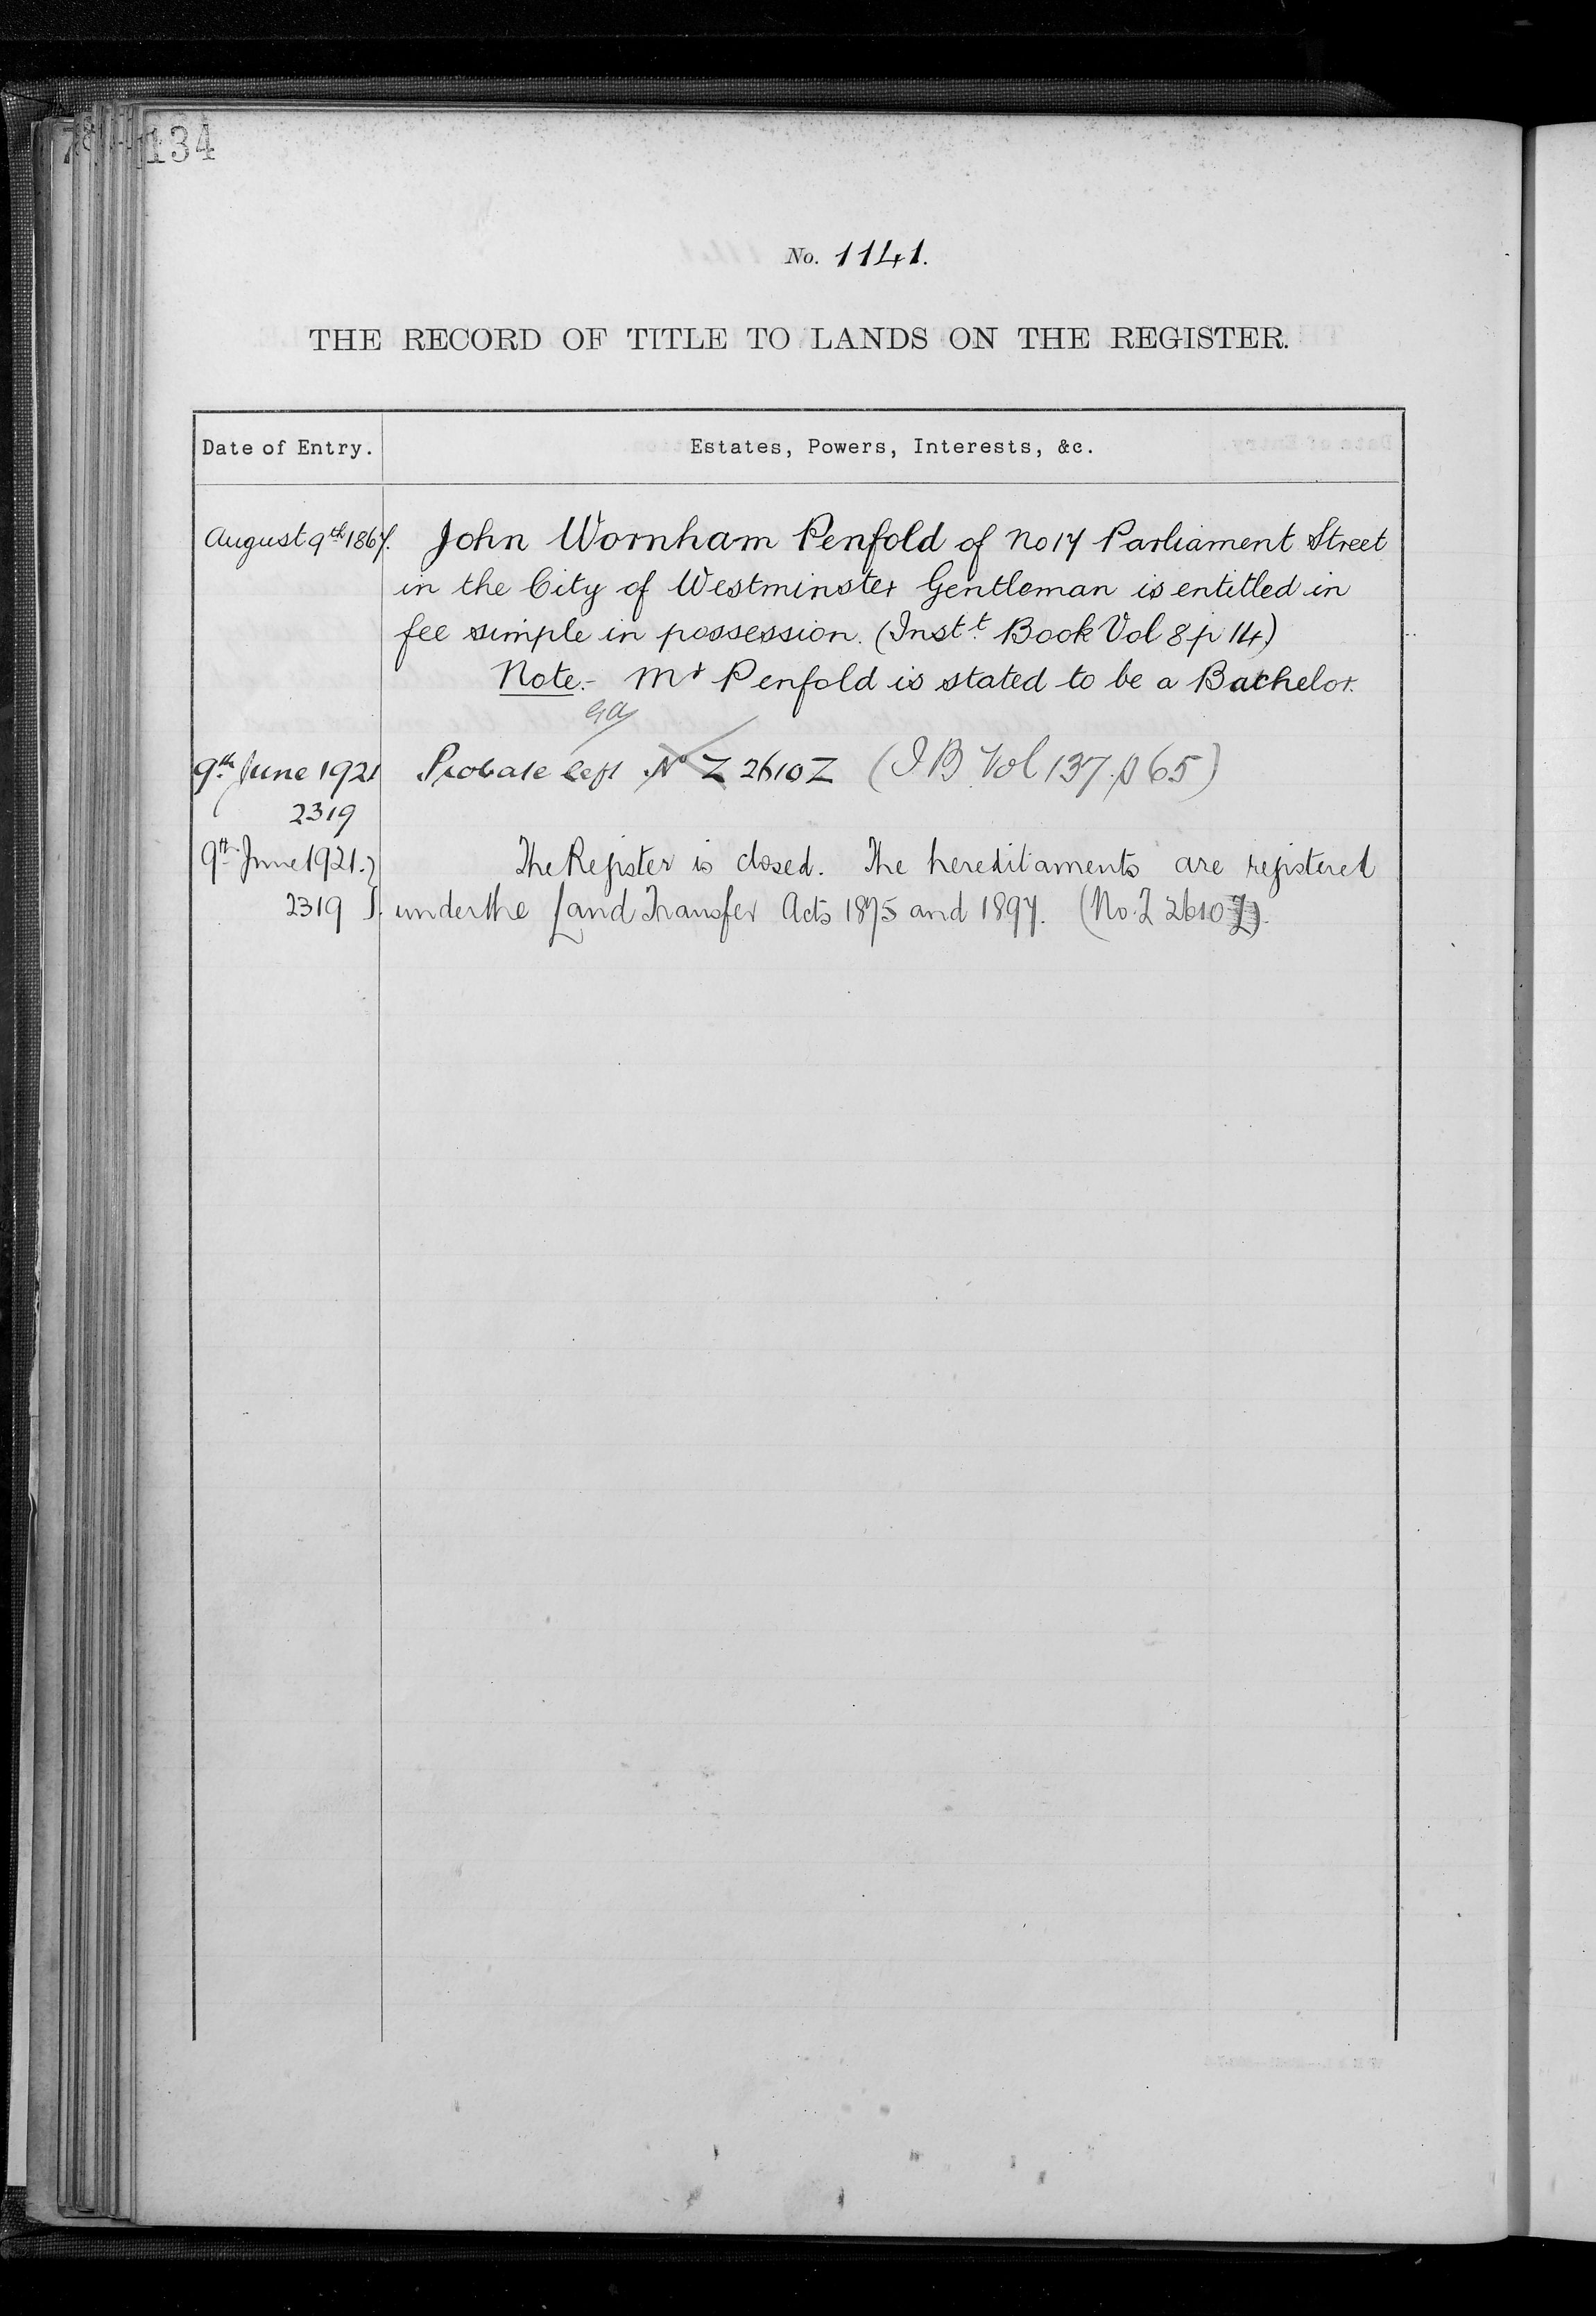 134
No. 1141.
THE RECORD OF TITLE TO LANDS ON THE REGISTER.
Date of Entry. Estates, Powers, Interests, &c.
August 9th 1867. John Wornham Penfold of No 17 Parliament Street
in the City of Westminster Gentleman is entitled in
fee simple in possession. (Instt. Book Vol 8 p 14)
Note.- Mr Penfold is stated to be a Bachelor.
9th June 1921 Probate left No Z 2610Z (I B Vol 137. p 65)
2319
9th June 1921. The Register is closed. The hereditaments are registered
2319 under the Land Transfer Acts 1875 and 1897. (No. Z 2610 Z).